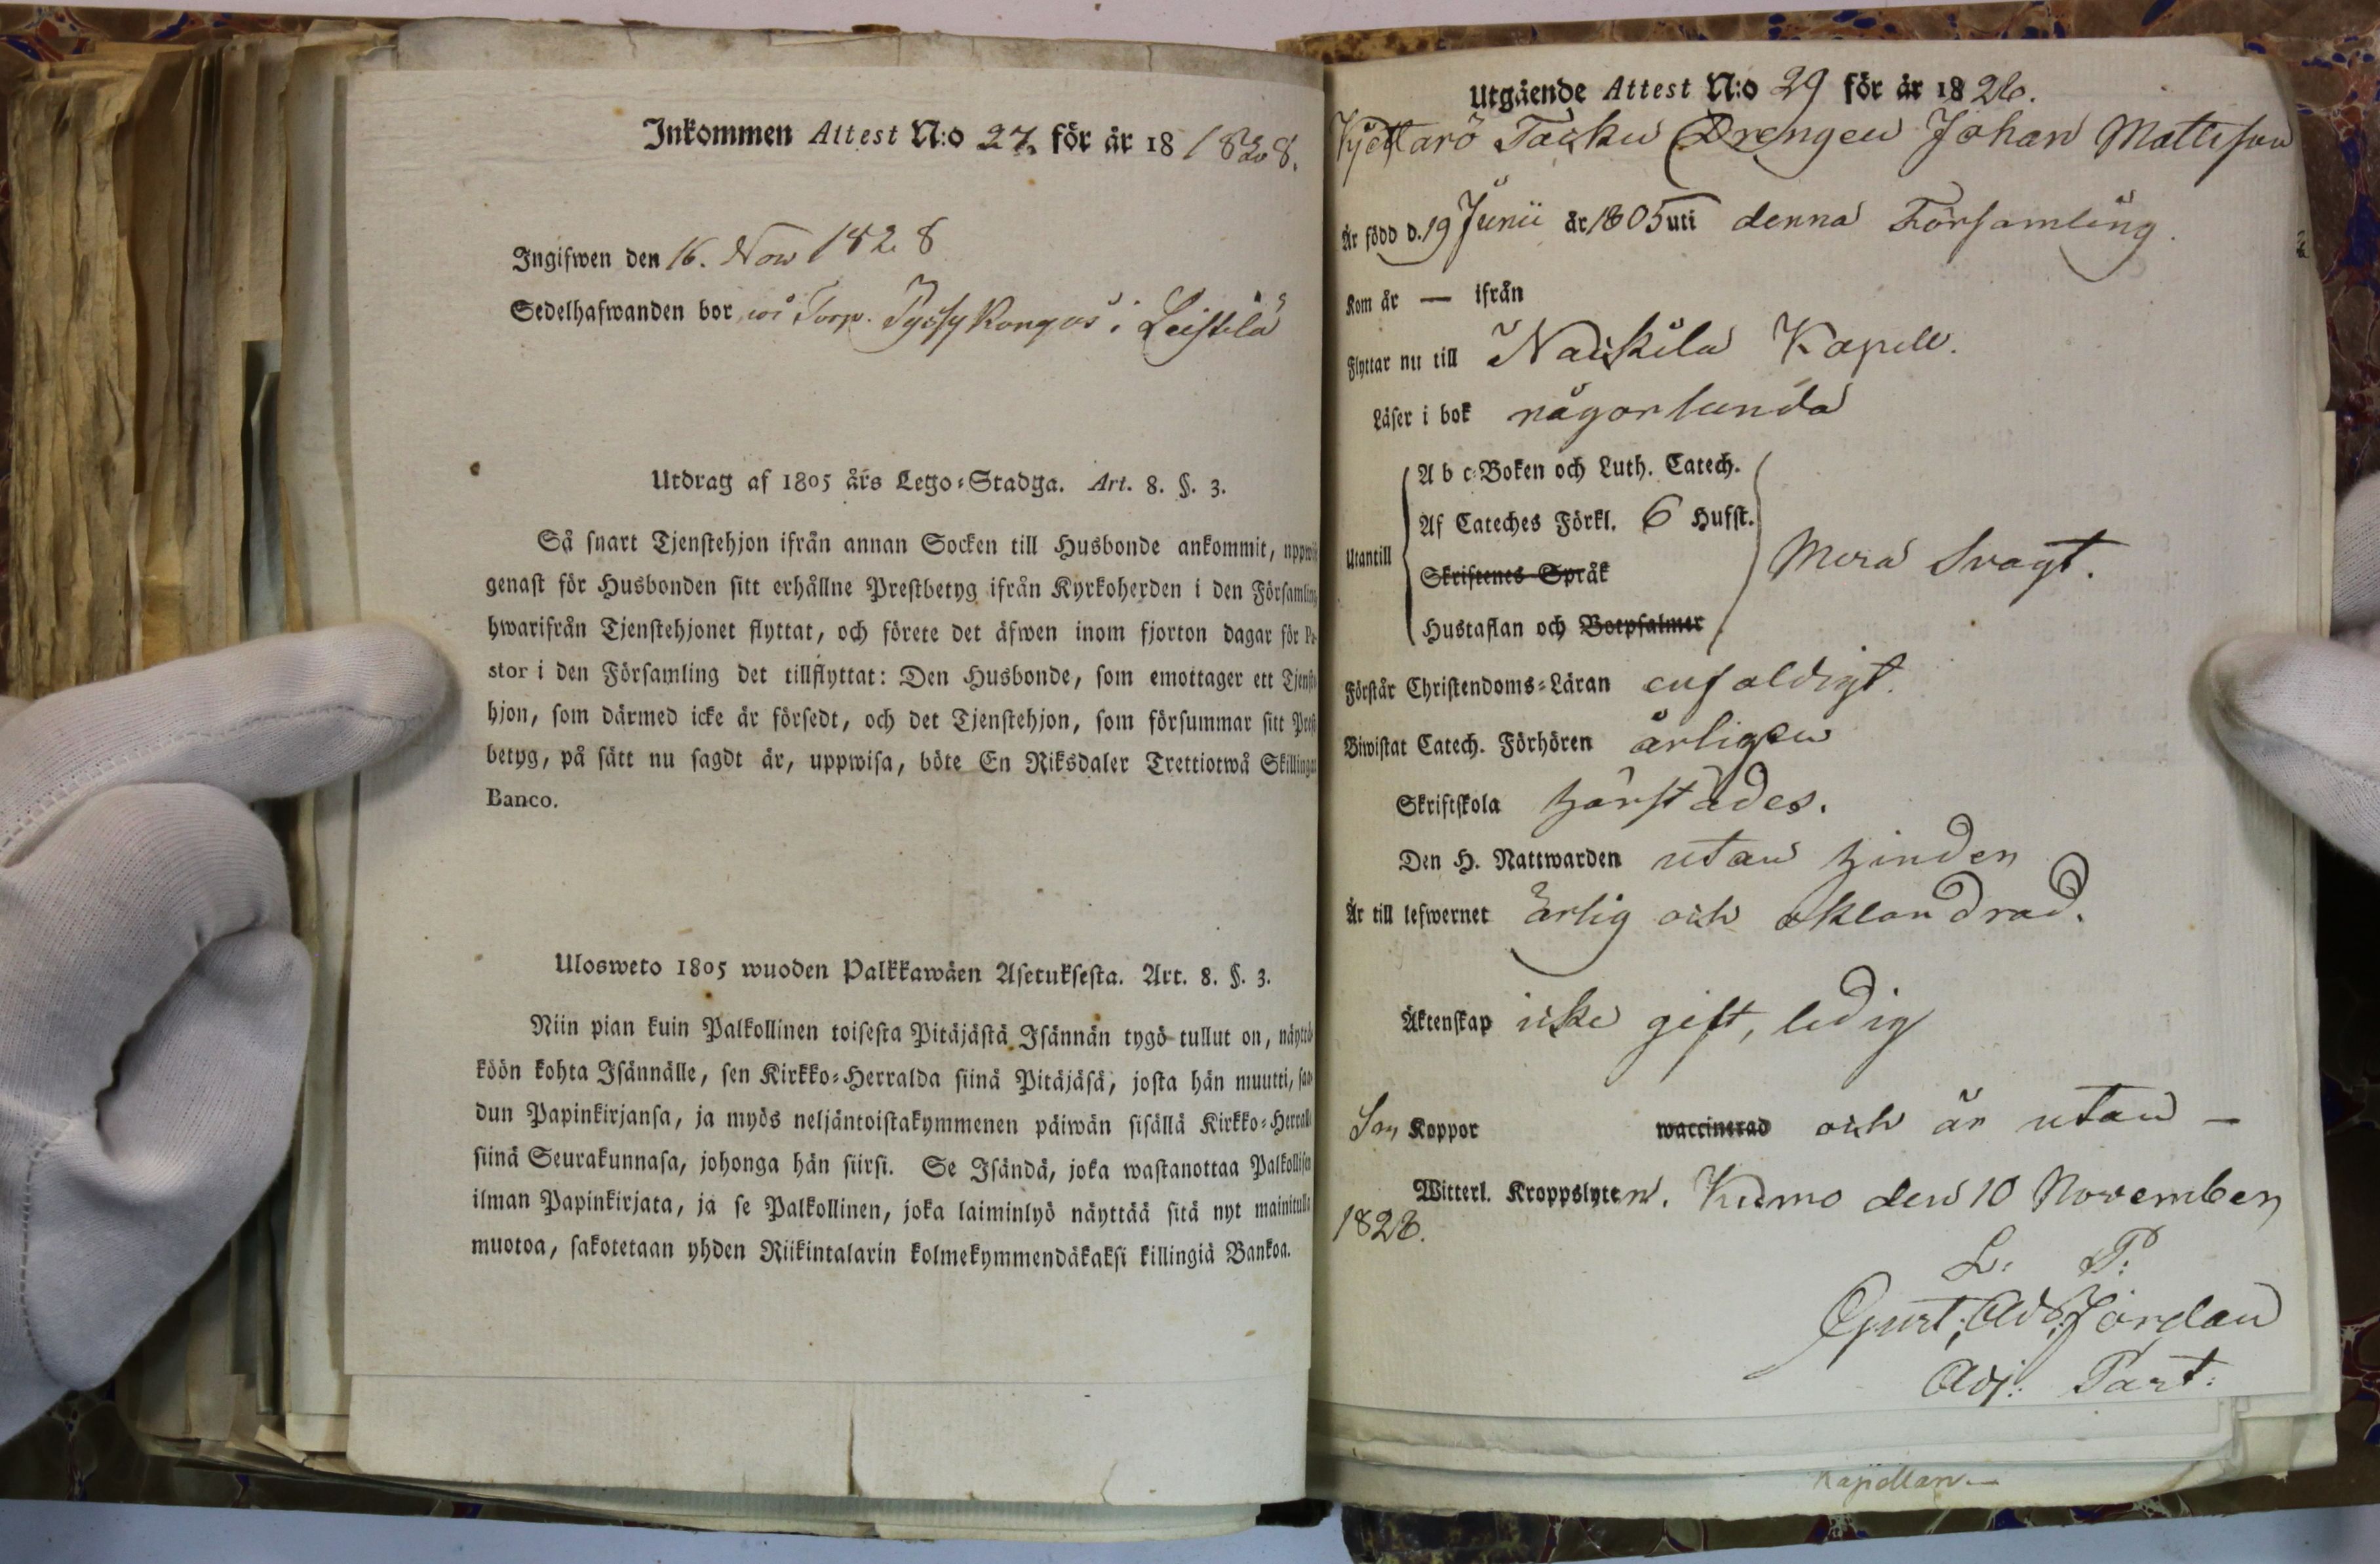 Inkommen Attest N:o 27. för år 18 1828.
Ingifwen den 16. Nov 1828
Sedelhafwanden bor wi Torp. i Leistilä
Utdrag af 1805 års Lego-Stadga. Art. 8. §. 3.
Så snart Tjenstehjon ifrån annan Socken till Husbonde ankommit, uppwi
genast för Husbonden sitt erhållne Prestbetyg ifrån Kyrkoherden i den Församling
hwarifrån Tjenstehjonet flyttat, och förete det äfwen inom fjorton dagar för Pa-
stor i den Församling det tillflyttat: Den Husbonde, som emottager ett Tjenste
hjon, som därmed icke är försedt, och det Tjenstehjon, som försummar sitt Prest
betyg, på sätt nu sagdt är, uppwisa, böte En Riksdaler Trettiotwå Skillingar
Banco.
Ulosweto 1805 wuoden Palkkawäen Asetuksesta. Art. 8. §. 3.
Niin pian kuin Palkollinen toisesta Pitäjästä Isännän tygö tullut on, näyttä
köön kohta Isännälle, sen Kirkko-Herralda siinä Pitäjäsä, josta hän muutti, saa
dun Papinkirjansa, ja myös neljäntoistakymmenen päiwän sisällä Kirkko-Herralle
siinä Seurakunnasa, johonga hän siirsi. Se Isändä, joka wastanottaa Palkollisen
ilman Papinkirjata, ja se Palkollinen, joka laiminlyö näyttää sitä nyt mainitulla
muotoa, sakotetaan yhden Riikintalarin kolmekymmendäkaksi killingiä Bankoa.
Utgående Attest N:o 29 för år 1828.
Kjettarö Tacku Drengen Johan Mattsson
Är född d. 19 Junii år 1805 uti denna Församling.
Kom år — ifrån
Flyttar nu till Nackila Kapell.
Läser i bok någorlunda
Utantill
A b c-Boken och Luth. Catech.
Af Cateches Förkl. 6 Hufst.
Skriftenes Språk
Hustaflan och Botpsalmer
Mera Svagt.
Förstår Christendoms-Läran enfaldigt.
Biwistat Catech. Förhören årligen
Skriftskola härstädes.
Den H. Nattwarden utan hinder
Är till lefwernet Ärlig och oklandrad.
Äktenskap icke gift, ledig
Koppor waccinerad och är utan —
Witterl. Kroppslyten. Kumo den 10 November
1828.
L. P.
Jordan
Adj: Past:
Kapellan.—